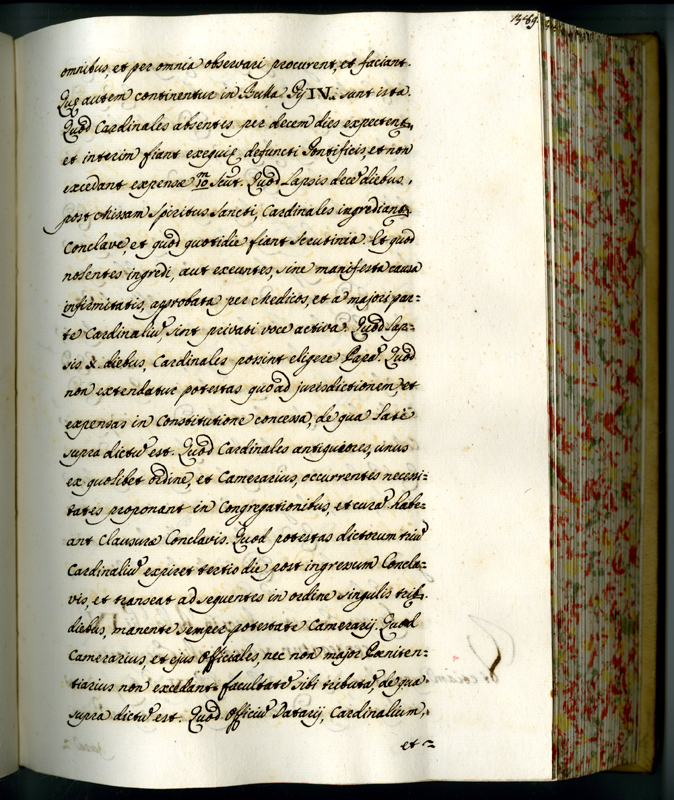 1369.
omnibus, et per omnia observari procurent, et faciant.
Quę autem continentur in Bulla Pij IV. sunt ista.
Quod Cardinales absentes per decem dies expectent,
et interim fiant exequię defuncti Pontificis, et non
excedant expensæ 10 m scut. Quod Lapsis dece' diebus,
post Missam Spiritus Sancti, Cardinales ingrediant.
Conclave, et quod quotidie fiant Scrutinia. Et quod
nolentes ingredi, aut exeuntes, sine manifesta causa
infirmitatis, approbata per Medicos, et a majori par=
te Cardinaliu', sint privati voce activa. Quod Lap=
sis X. diebus, Cardinales possint eligere Papa'. Quod
non extendatur potestas quoad jurisdictionem, et
expensas in Constitutione concessa, de qua Late
supra dictu' est. Quod Cardinales antiquiores, unus
ex quolibet ordine, et Camerarius, occurrentes necessi=
tates proponant in Congregationibus, et cura' habe=
ant Clausuræ Conclavis. Quod potestas dictorum triu'
Cardinaliu' expiret tertio die post ingressum Concla=
vis, et transeat ad sequentes in ordine singulis trib.
diebus, manente semper potestate Camerarij. Quod
Camerarius, et ejus Officiales, nec non major Pœniten=
tiarius non excedant facultate' sibi tributa', de qua
supra dictu' est. Quod Officiu' Datarij, Cardinalium,
et =